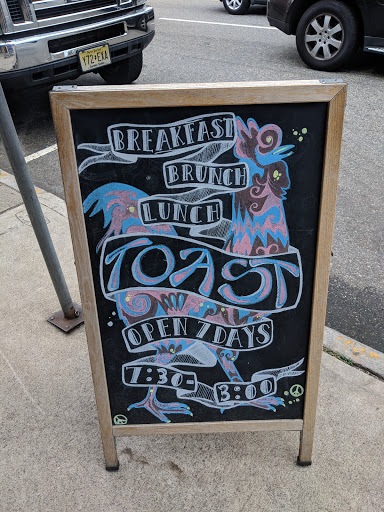 Y72•EXA
BREAKFAST
BRUNCH
LUNCH
TOAST
OPEN 7 DAYS
7:30-
3:00